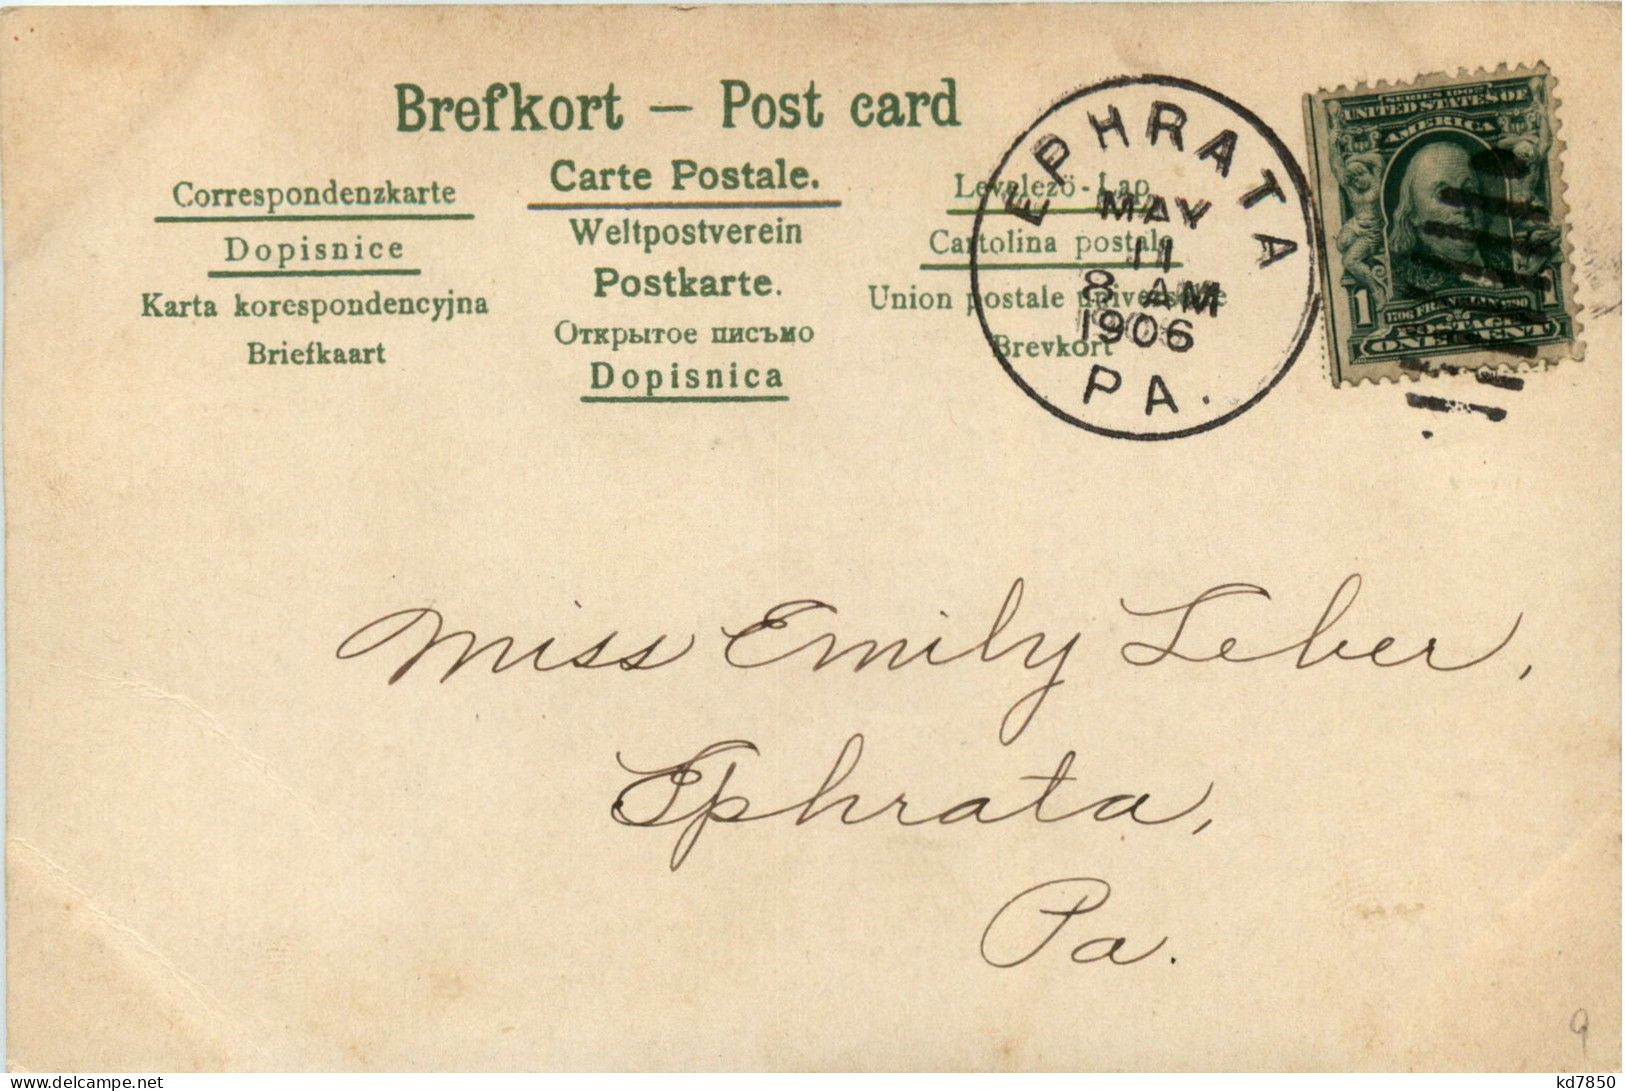 Brefkort — Post card
Correspondenzkarte
Dopisnice
Karta korespondencyjna
Briefkaart
Carte Postale.
Weltpostverein
Postkarte.
Открытое письмо
Dopisnica
Levelezö-Lap
Cartolina postale
Union postale universelle
Brevkort
EPHRATA
MAY
11
8 AM
1906
PA.
SERIES 1902
UNITED STATES OF
AMERICA
1
1
POSTAGE
ONE CENT
Miss Emily Leber,
Ephrata,
Pa.
9
kd7850